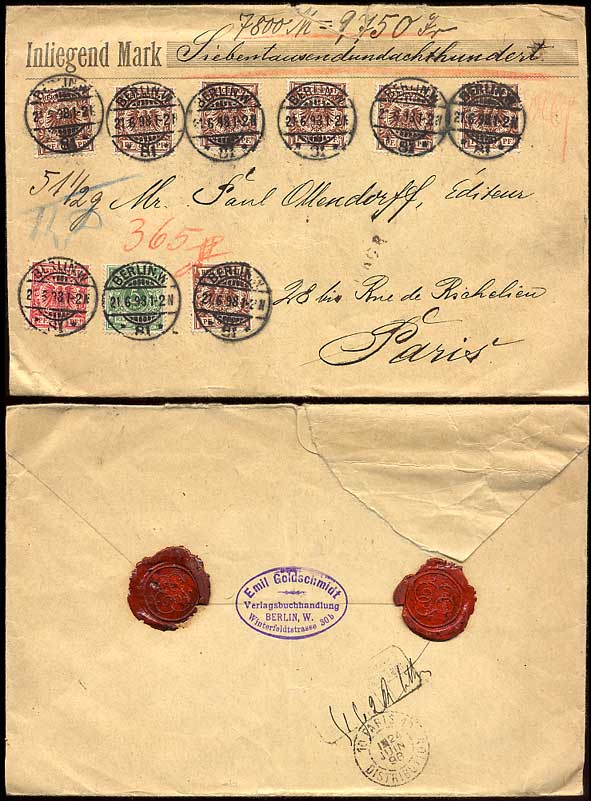 7800 M = 9750 Fr
Inliegend Mark Siebentausendundachthundert
BERLIN.W. 21.6.98.1-2N 81
BERLIN.W. 21.6.98.1-2N 81
BERLIN.W. 21.6.98.1-2N 81
BERLIN.W. 21.6.98.1-2N 81
BERLIN.W. 21.6.98.1-2N 81
BERLIN.W. 21.6.98.1-2N 81
51 1/2 g Mr. Paul Ollendorff, Éditeur
365
BERLIN.W. 21.6.98.1-2N 81
BERLIN.W. 21.6.98.1-2N 81
BERLIN.W. 21.6.98.1-2N 81
28 bis Rue de Richelieu
Paris.
Emil Goldschmidt
Verlagsbuchhandlung
BERLIN, W.
Winterfeldtstrasse 30b
PARIS
24
JUIN
98
DISTRIBUTION